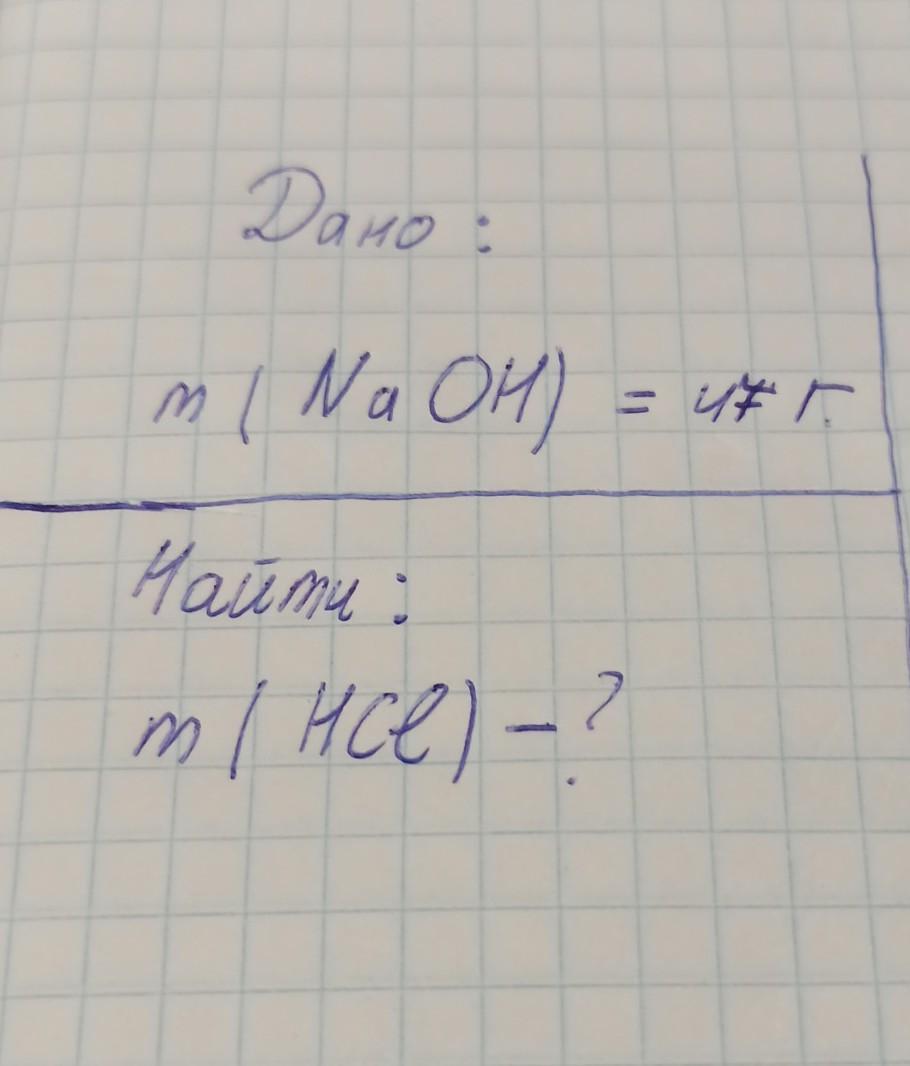 Дано:
m (NaOH) = 47 г.
Найти:
m (HCl) - ?